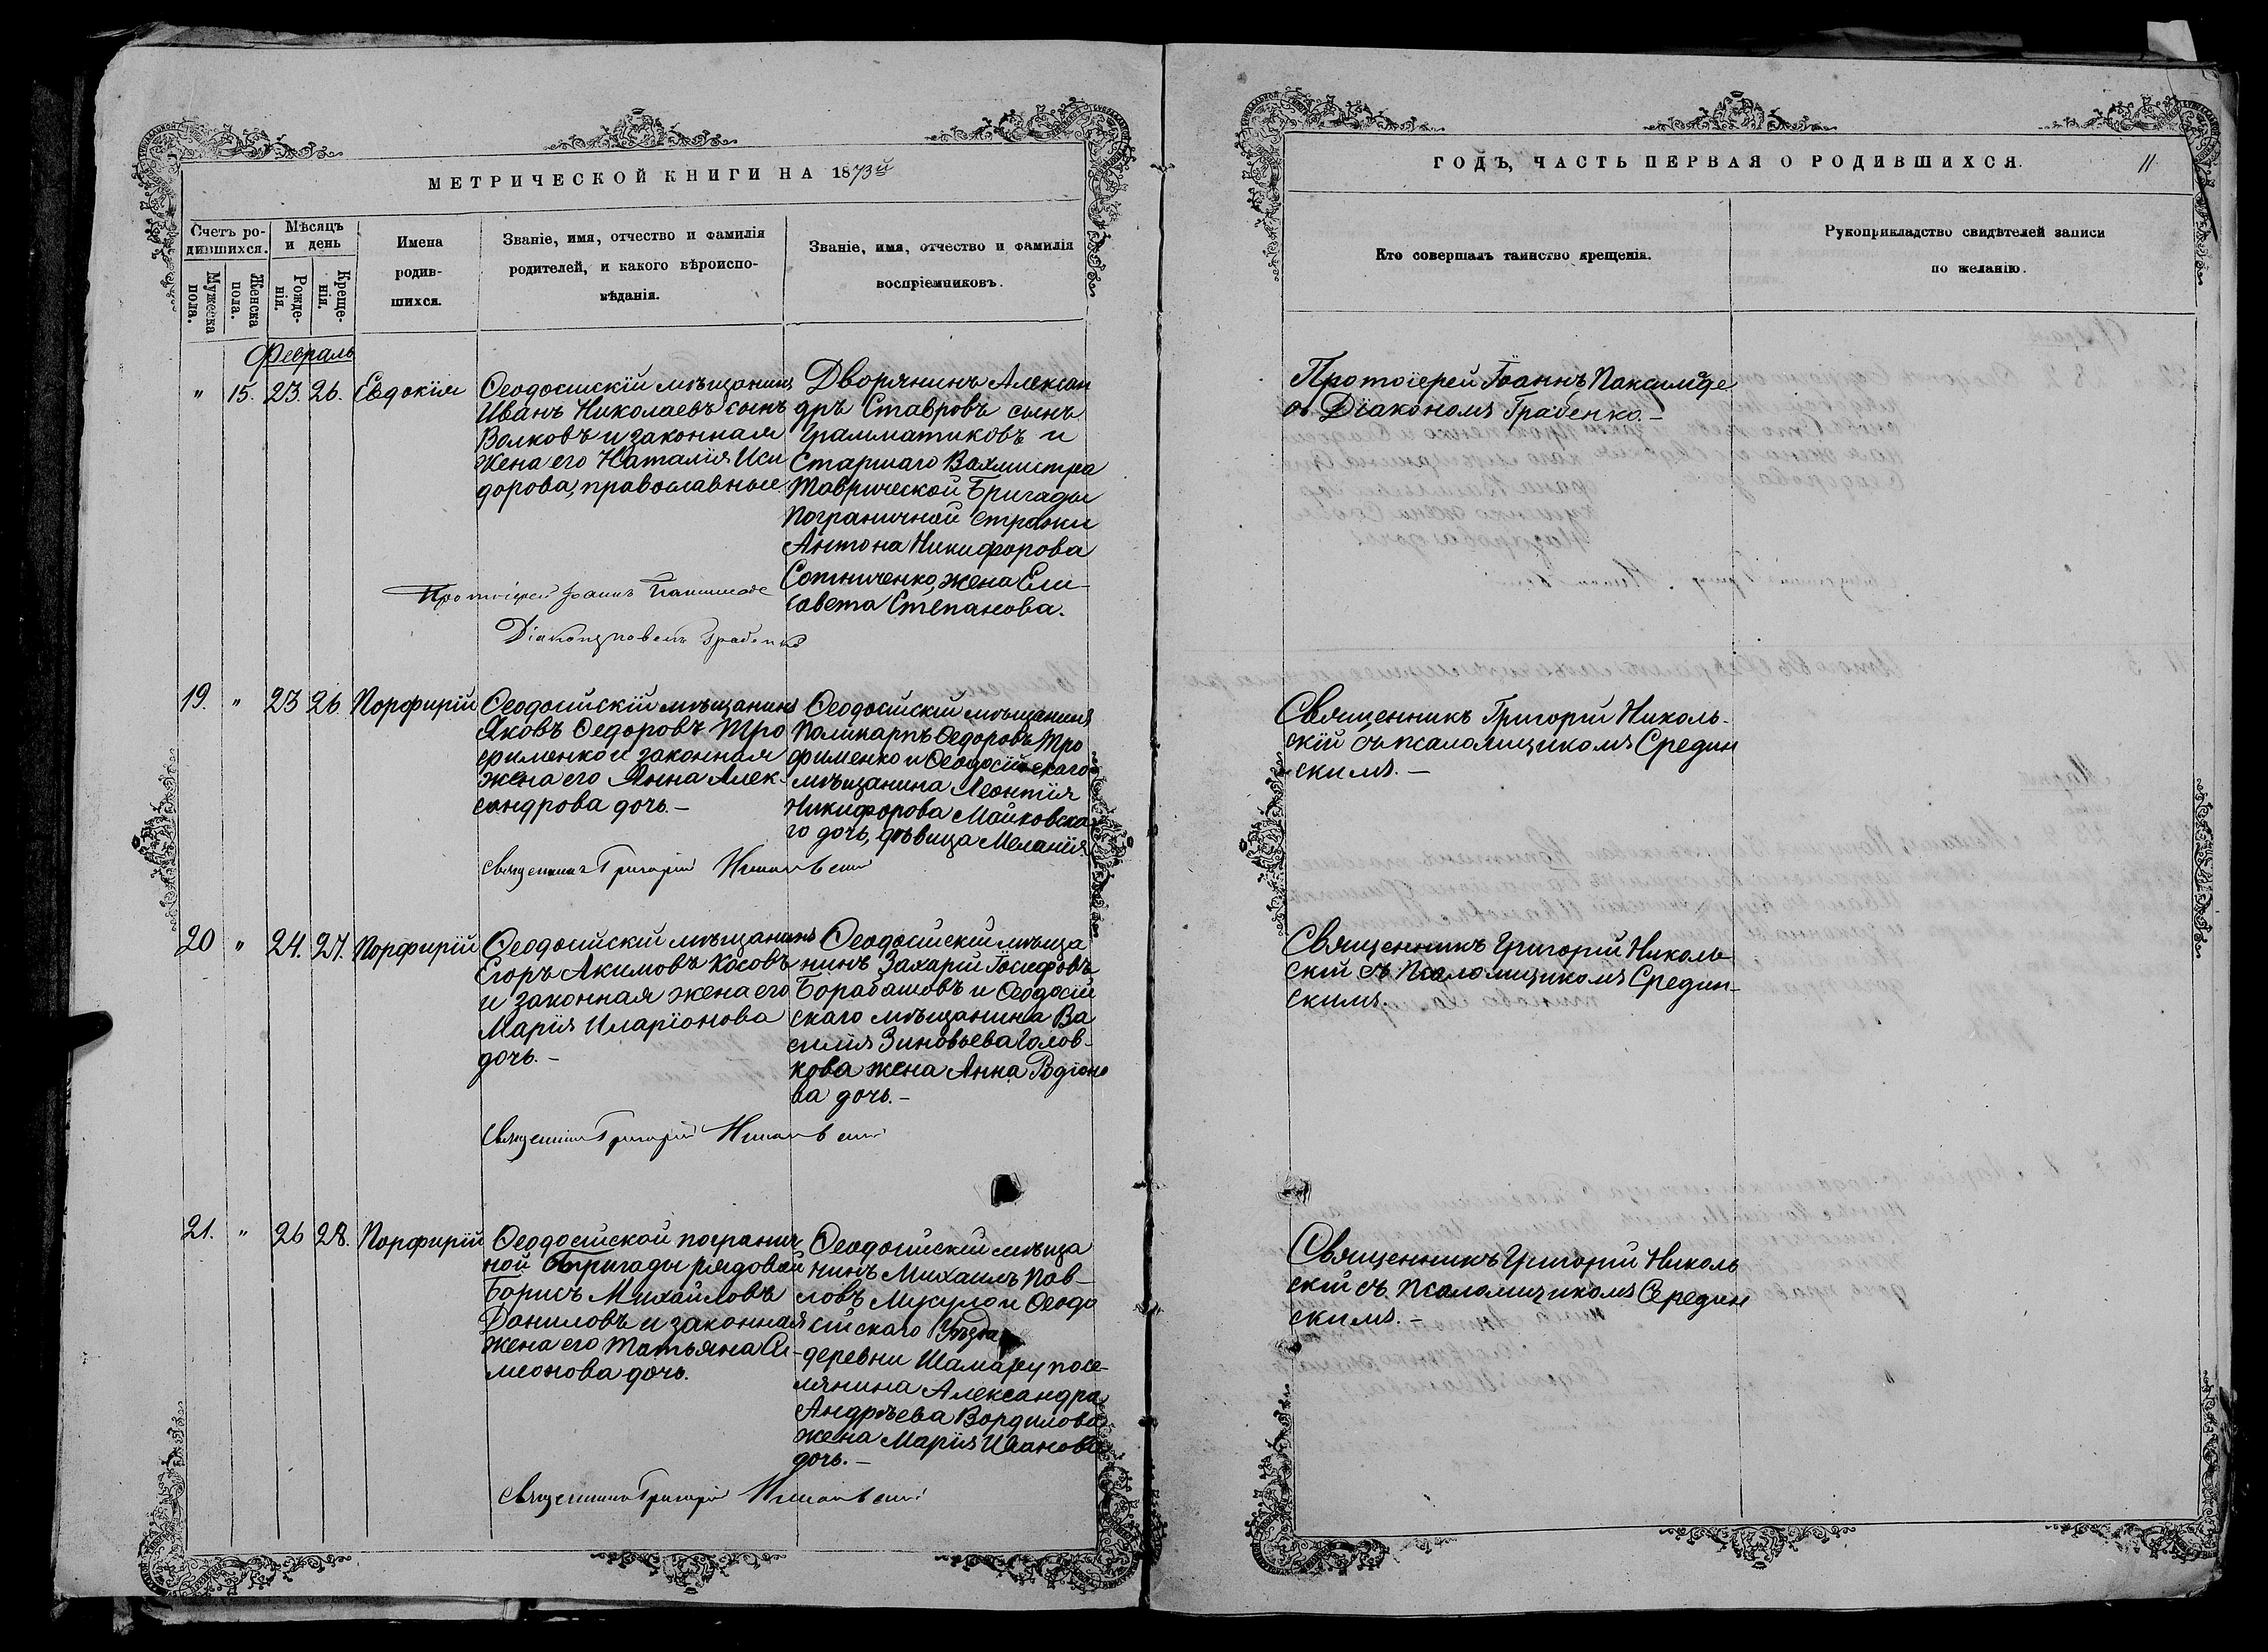 МЕТРИЧЕСКОЙ КНИГИ НА 1873й
Счетъ ро-
дившихся.
Мѣсяцъ
и день
Мужеска
пола.
Женска
пола.
Рожде-
нія.
Креще-
нія.
Имена
родив-
шихся.
Званіе, имя, отчество и фамилія
родителей, и какого вѣроиспо-
вѣданія.
Званіе, имя, отчество и фамилія
воспріемниковъ.
Февраль
" 15. 23. 26. Евдокія
Ѳеодосійскій мѣщанинъ
Иванъ Николаевъ сынъ
Волковъ и законная
жена его Наталія Иси
дорова, православные
Дворянинъ Алексан
дръ Ставровъ сынъ
Грамматиковъ и
Старшаго Вахмистра
Таврической Бригады
Пограничной стражи
Антона Никифорова
Сотниченко, жена Ели-
савета Степанова.
Протоіерей Іоаннъ
Діаконъ Грабенко
19. " 23 26 Порфирій
Ѳеодосійскій мѣщанинъ
Яковъ Ѳедоровъ Тро
фименко и законная
жена его Анна Алек-
сандрова дочь.-
Ѳеодосійскій мѣщанинъ
Поликарпъ Ѳедоровъ Тро
фименко и Ѳеодосійскаго
мѣщанина Леонтія
Никифорова Майковска
го дочь, дѣвица Меланія
Священникъ Григорій Никольскій
20 " 24. 27. Порфирій
Ѳеодосійскій мѣщанинъ
Егоръ Акимовъ Косовъ
и законная жена его
Марія Иларіонова
дочь.-
Ѳеодосійскій мѣща
нинъ Захарій Іосифовъ
Борабашовъ и Ѳеодосій
скаго мѣщанина Ва
силія Зиновьева Голов-
кова жена Анна Родіоно
ва дочь.-
Священникъ Григорій Никольскій
21. " 26 28. Порфирій
Ѳеодосійской погранич
ной Бригады рядовой
Борисъ Михайловъ
Даниловъ и законная
жена его Татьяна Си-
меонова дочь.
Ѳеодосійскій мѣща
нинъ Михаилъ Пав-
ловъ и Ѳеодо
сійскаго Уѣзда
деревни посе-
лянина Александра
Андрѣева Вордилова
жена Марія Иванова
дочь.-
Священникъ Григорій Никольскій
ГОДЪ, ЧАСТЬ ПЕРВАЯ О РОДИВШИХСЯ.
11
Кто совершалъ таинство крещенія.
Рукоприкладство свидѣтелей записи
по желанію.
Протоіерей Іоаннъ
съ Діакономъ Грабенко.-
Священникъ Григорій Николь-
скій съ псаломщикомъ Средин
скимъ.-
Священникъ Григорій Николь
скій съ Псаломщикомъ Средин-
скимъ.
Священникъ Григорій Николь
скій съ Псаломщикомъ Середин
скимъ.-